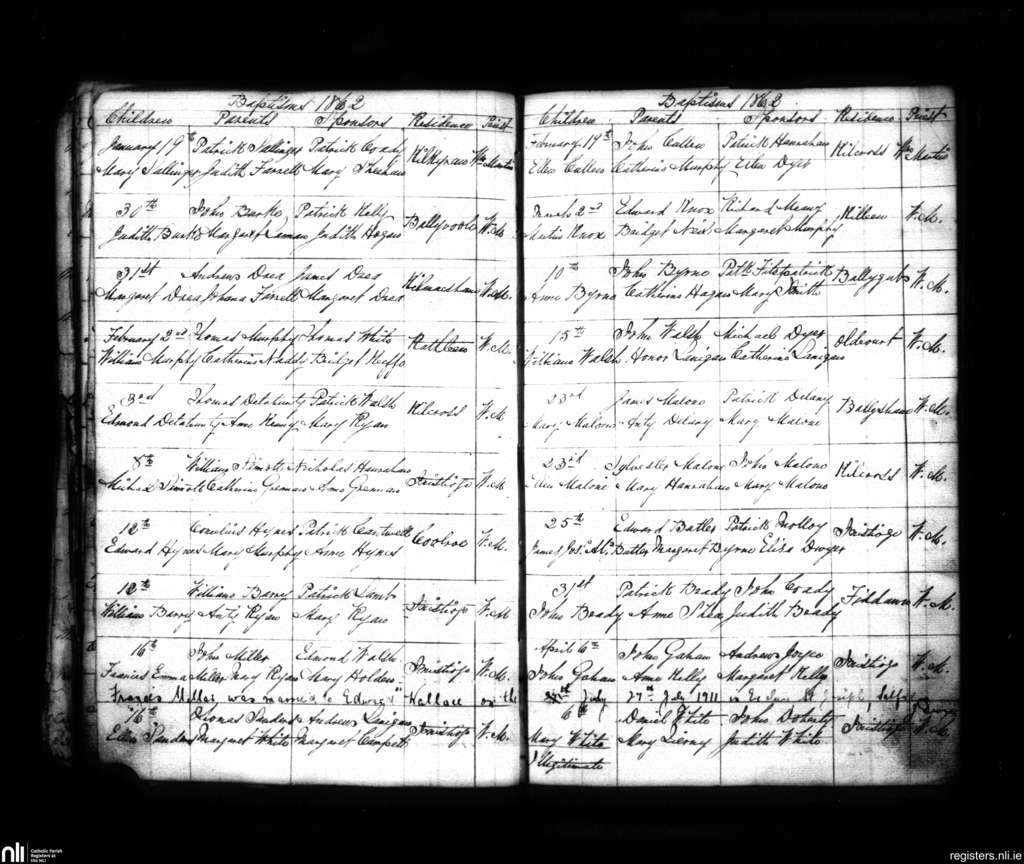 Baptisms 1862
Children Parents Sponsors Residence Priest
January 19th Patrick Sallinger Patrick Coady Kilkyran Wm Martin
Mary Sallinger Judith Farrell Mary Sheehan
30th John Burke Patrick Kelly Ballyvoole W.M.
Judith Burke Margaret Judith Hogan
31st Andrew Drea James Drea W.M.
Margaret Drea Johana Farrell Margaret Drea
February 2nd Thomas Murphy Thomas White Rathleen W.M.
William Murphy Catherine Naddy Bridget
3rd Thomas Delahunty Patrick Walsh Kilcross W.M
Edmond Delahunty Anne Mary Ryan
8th William Nicholas Hanrahan Inistioge W.M
Michael Catherine Grennan Anne Grennan
12th Cornelius Hynes Patrick Cantwell Coolroe W.M.
Edward Hynes Mary Murphy Anne Hynes
12th William Barry Patrick Lamb Inistioge W.M
William Barry Anty Ryan Mary Ryan
16th John Miller Edmond Walsh Inistioge W.M.
Frances Emma Miller Mary Ryan Mary Holden
Frances Miller was married to Edward Wallace on the
16th Thomas Sanders Andrew Langan Inistioge W.M.
Ellen Sanders Margaret White Margaret
Baptisms 1862
Children Parents Sponsors Residence Priest
February 19th John Cullen Patrick Hanrahan Kilcross Wm Martin
Ellen Cullen Catherine Murphy Ellen Dyer
March 2nd Edward Knox Richard Meany W.M.
Martin Knox Bridget Margaret Murphy
10th John Byrne Patk Fitzpatrick Ballygub W.M.
Anne Byrne Catherine Hagan Mary Smith
15th John Walsh Michael Dyer Oldcourt W.M.
William Walsh Honor Lanigan Catherine Lanigan
23rd James Malone Patrick Delany W.M.
Mary Malone Anty Delany Mary Malone
23rd Sylvester Malone John Malone Kilcross W.M.
Ellen Malone Mary Hanrahan Mary Malone
25th Edward Butler Patrick Molloy Inistioge W.M.
James Jos. Butler Margaret Byrne Eliza Dwyer
31st Patrick Brady John Coady Fiddawn W.M.
John Brady Anne Shea Judith Brady
April 6th John Gahan Andrew Joyce Inistioge W.M.
John Gahan Anne Kelly Margaret Kelly
July 27th July 1911 in St Joseph
6th Daniel White John Doherty Inistioge W.M.
Mary White Mary Tierny Judith White
Illegitimate
nli Catholic Parish
Registers at
the NLI
registers.nli.ie